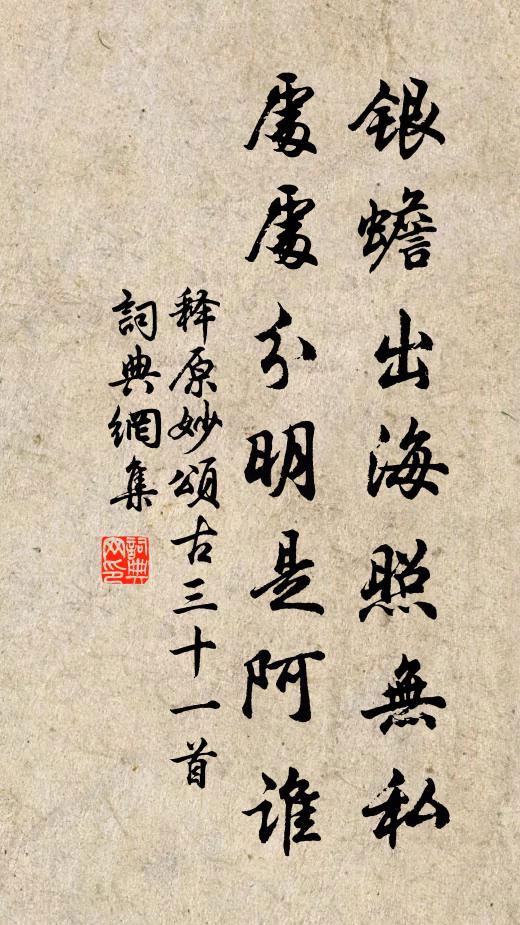 銀蟾出海照無私
處處分明是阿誰
释原妙頌古三十一首
詞典網集
詞典网印